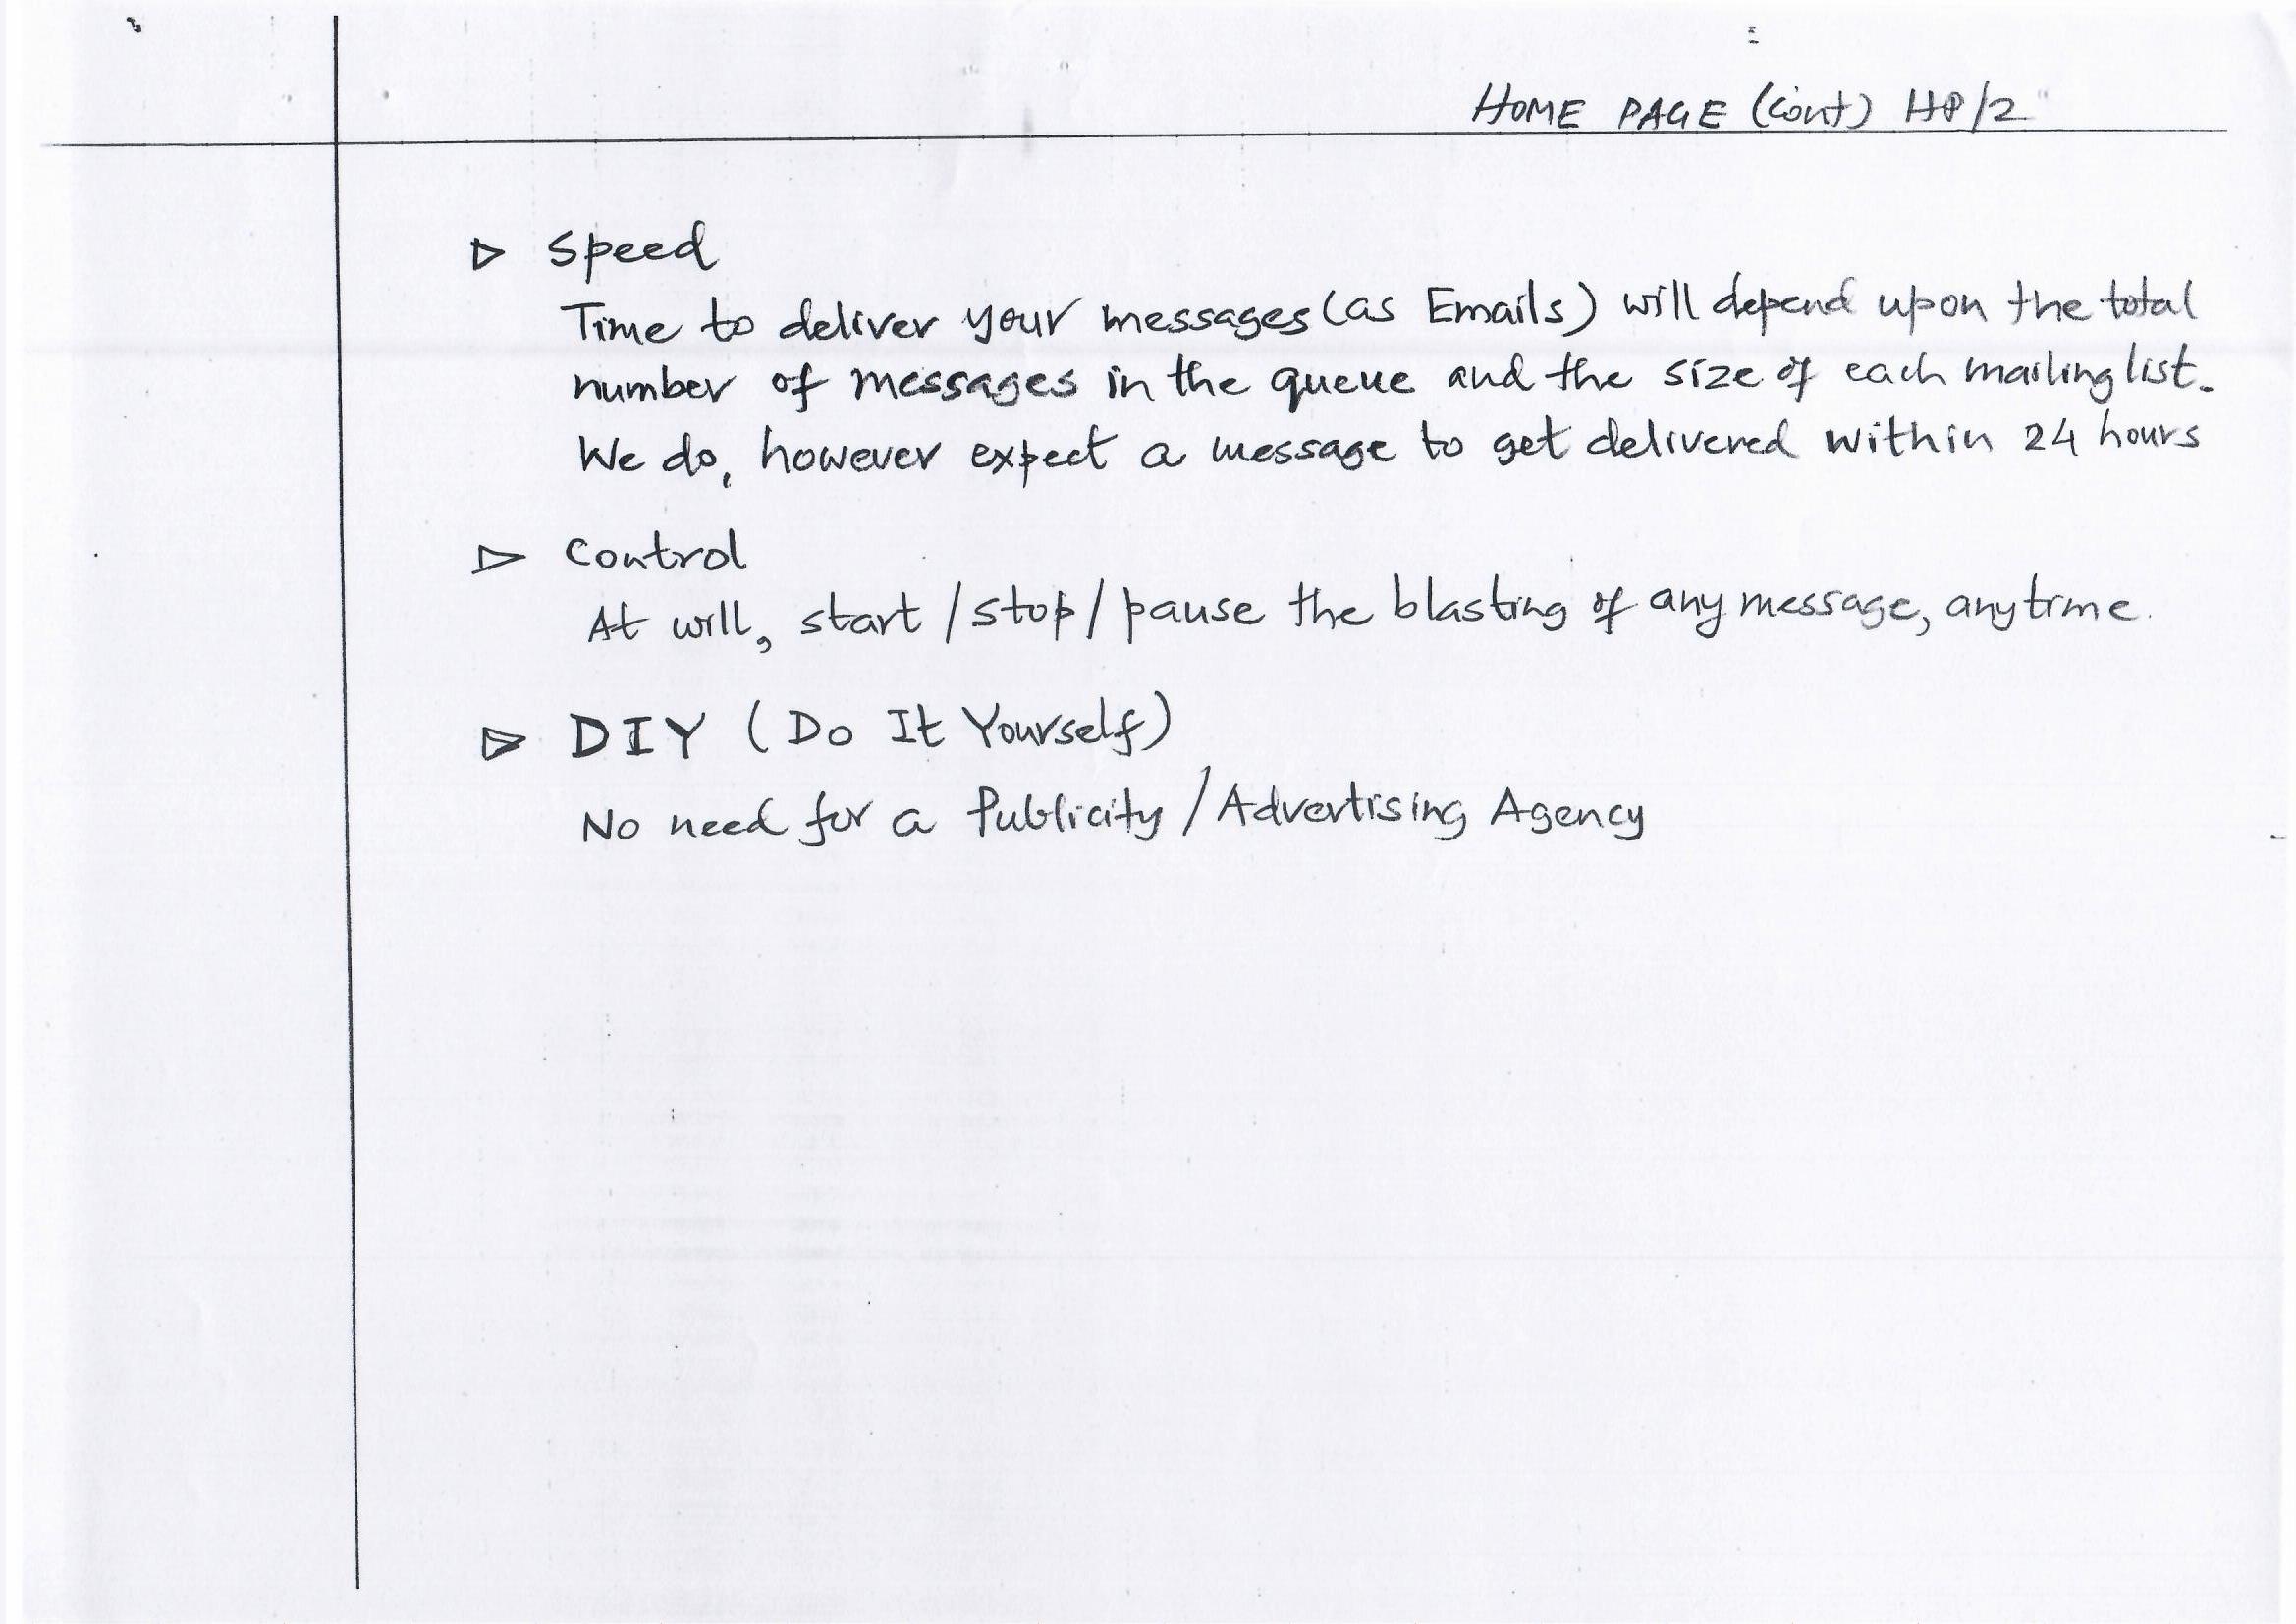 HOME PAGE (Cont) HP/2
▷ Speed
Time to deliver your messages (as Emails) will depend upon the total
number of messages in the queue and the size of each mailing list.
We do, however expect a message to get delivered within 24 hours
▷ Control
At will, start / stop / pause the blasting of any message, anytime.
▷ DIY (Do It Yourself)
No need for a Publicity / Advertising Agency